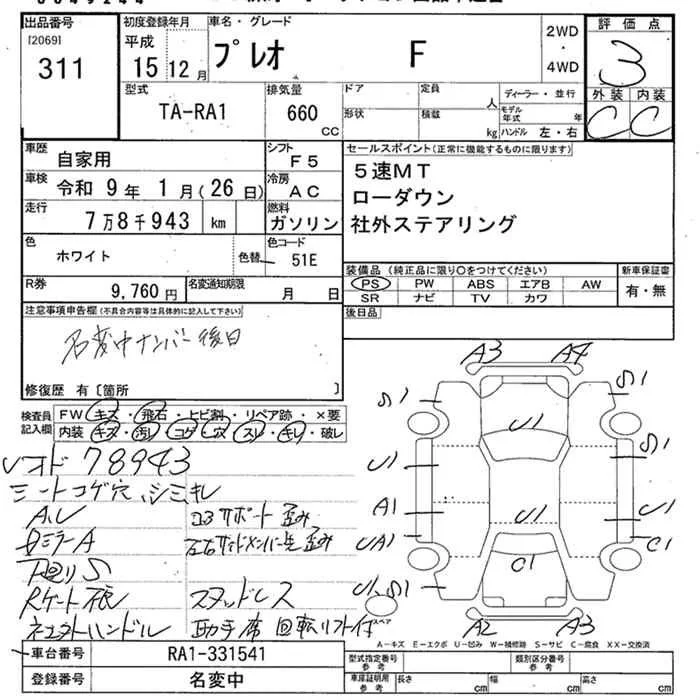 出品番号
[2069]
311
初度登録年月
平成
15 12 月
車名・グレード
プレオ F
2WD
・
4WD
評価点
3
外装 内装
C C
型式
TA-RA1
排気量
660
CC
ドア
定員
人
形状
積載
kg
ディーラー・並行
モデル年式 年
ハンドル 左・右
車歴
自家用
シフト
F5
車検
令和 9年 1月(26日)
冷房
AC
走行
7万8千943 km
燃料
ガソリン
色
ホワイト
色替
色コード
51E
R券
9,760円
名変通知期限
月 日
セールスポイント(正常に機能するものに限ります)
5速MT
ローダウン
社外ステアリング
装備品(純正品に限り○をつけてください)
PS PW ABS エアB AW
SR ナビ TV カワ
新車保証書
有・無
後日品
注意事項申告欄(不具合内容等は具体的に記入して下さい)
名変中ナンバー後日
修復歴 有〔箇所 〕
検査員
記入欄
FW キズ・飛石・ヒビ割・リペア跡・×要
内装 キズ・汚レ・コゲ・穴・スレ・キレ・破レ
78943
シートコゲ穴、シミ、キレ
A、U
コアサポート歪み
ミラーA
左右サイドメンバー先歪み
下廻りS
スタッドレス
ハンドル
助手席回転リフト付
A3 A4
S1 S1
U1
U1 S1
A1 U1 U1
UA1 C1
C1
U1、S1
スペア
A2 A3
A-キズ E-エクボ U-凹み W-補修跡 S-サビ C-腐食 XX-交換済
車台番号
RA1-331541
登録番号
名変中
型式指定番号
参考
類別区分番号
参考
車庫証明用
参考
長さ cm
幅 cm
高さ cm